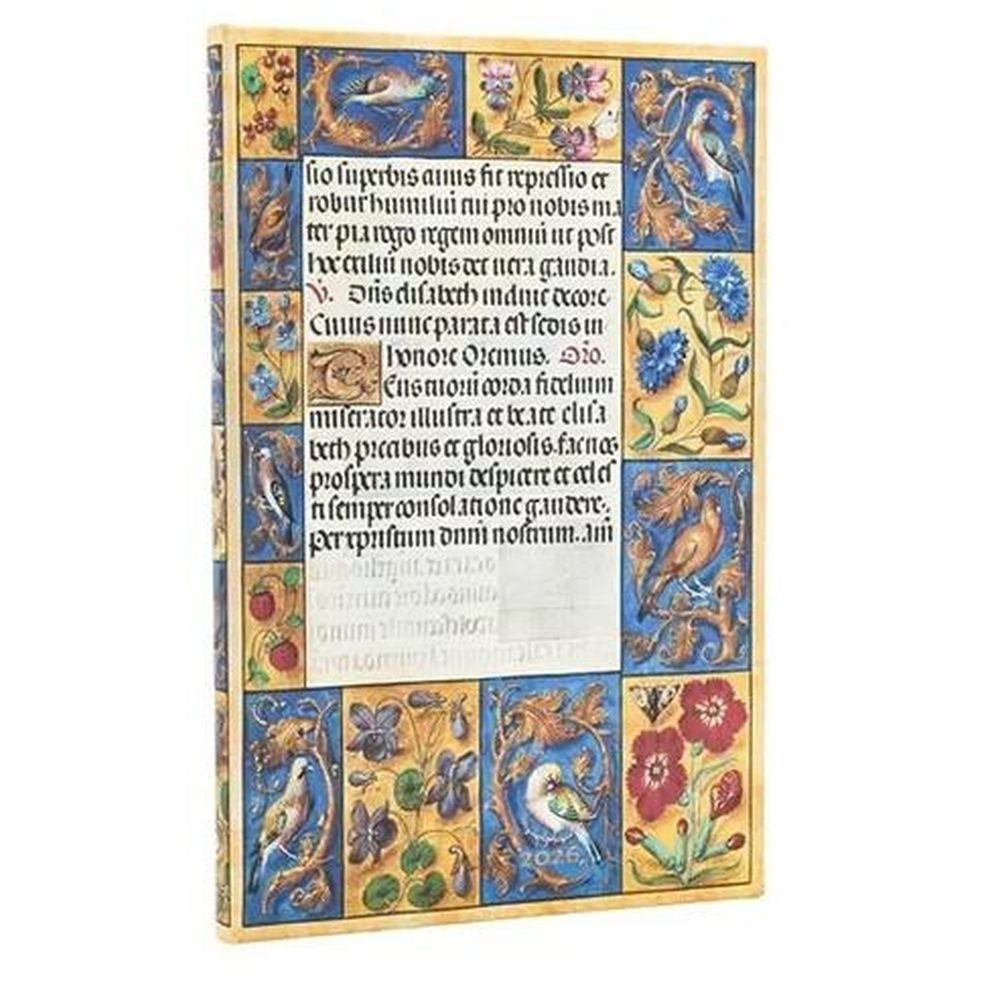 sio superbis auiis fit repressio et
robur humiliū tui pro nobis ma
ter pia rogo regem omniū ut post
hoc exiliū nobis det uera gaudia.
V. Diis elisabeth indiuie decore
Cuius nunc parata est sedis in
honore Oremus. Oro.
Deus tuorū corda fidelium
miserator illustra et beate elisa
beth precibus et gloriosis. fac nos
prospera mundi despicere et celes
ti semper consolatione gaudere.
Per xpristum dnm̄ nostrum. am̄
2026